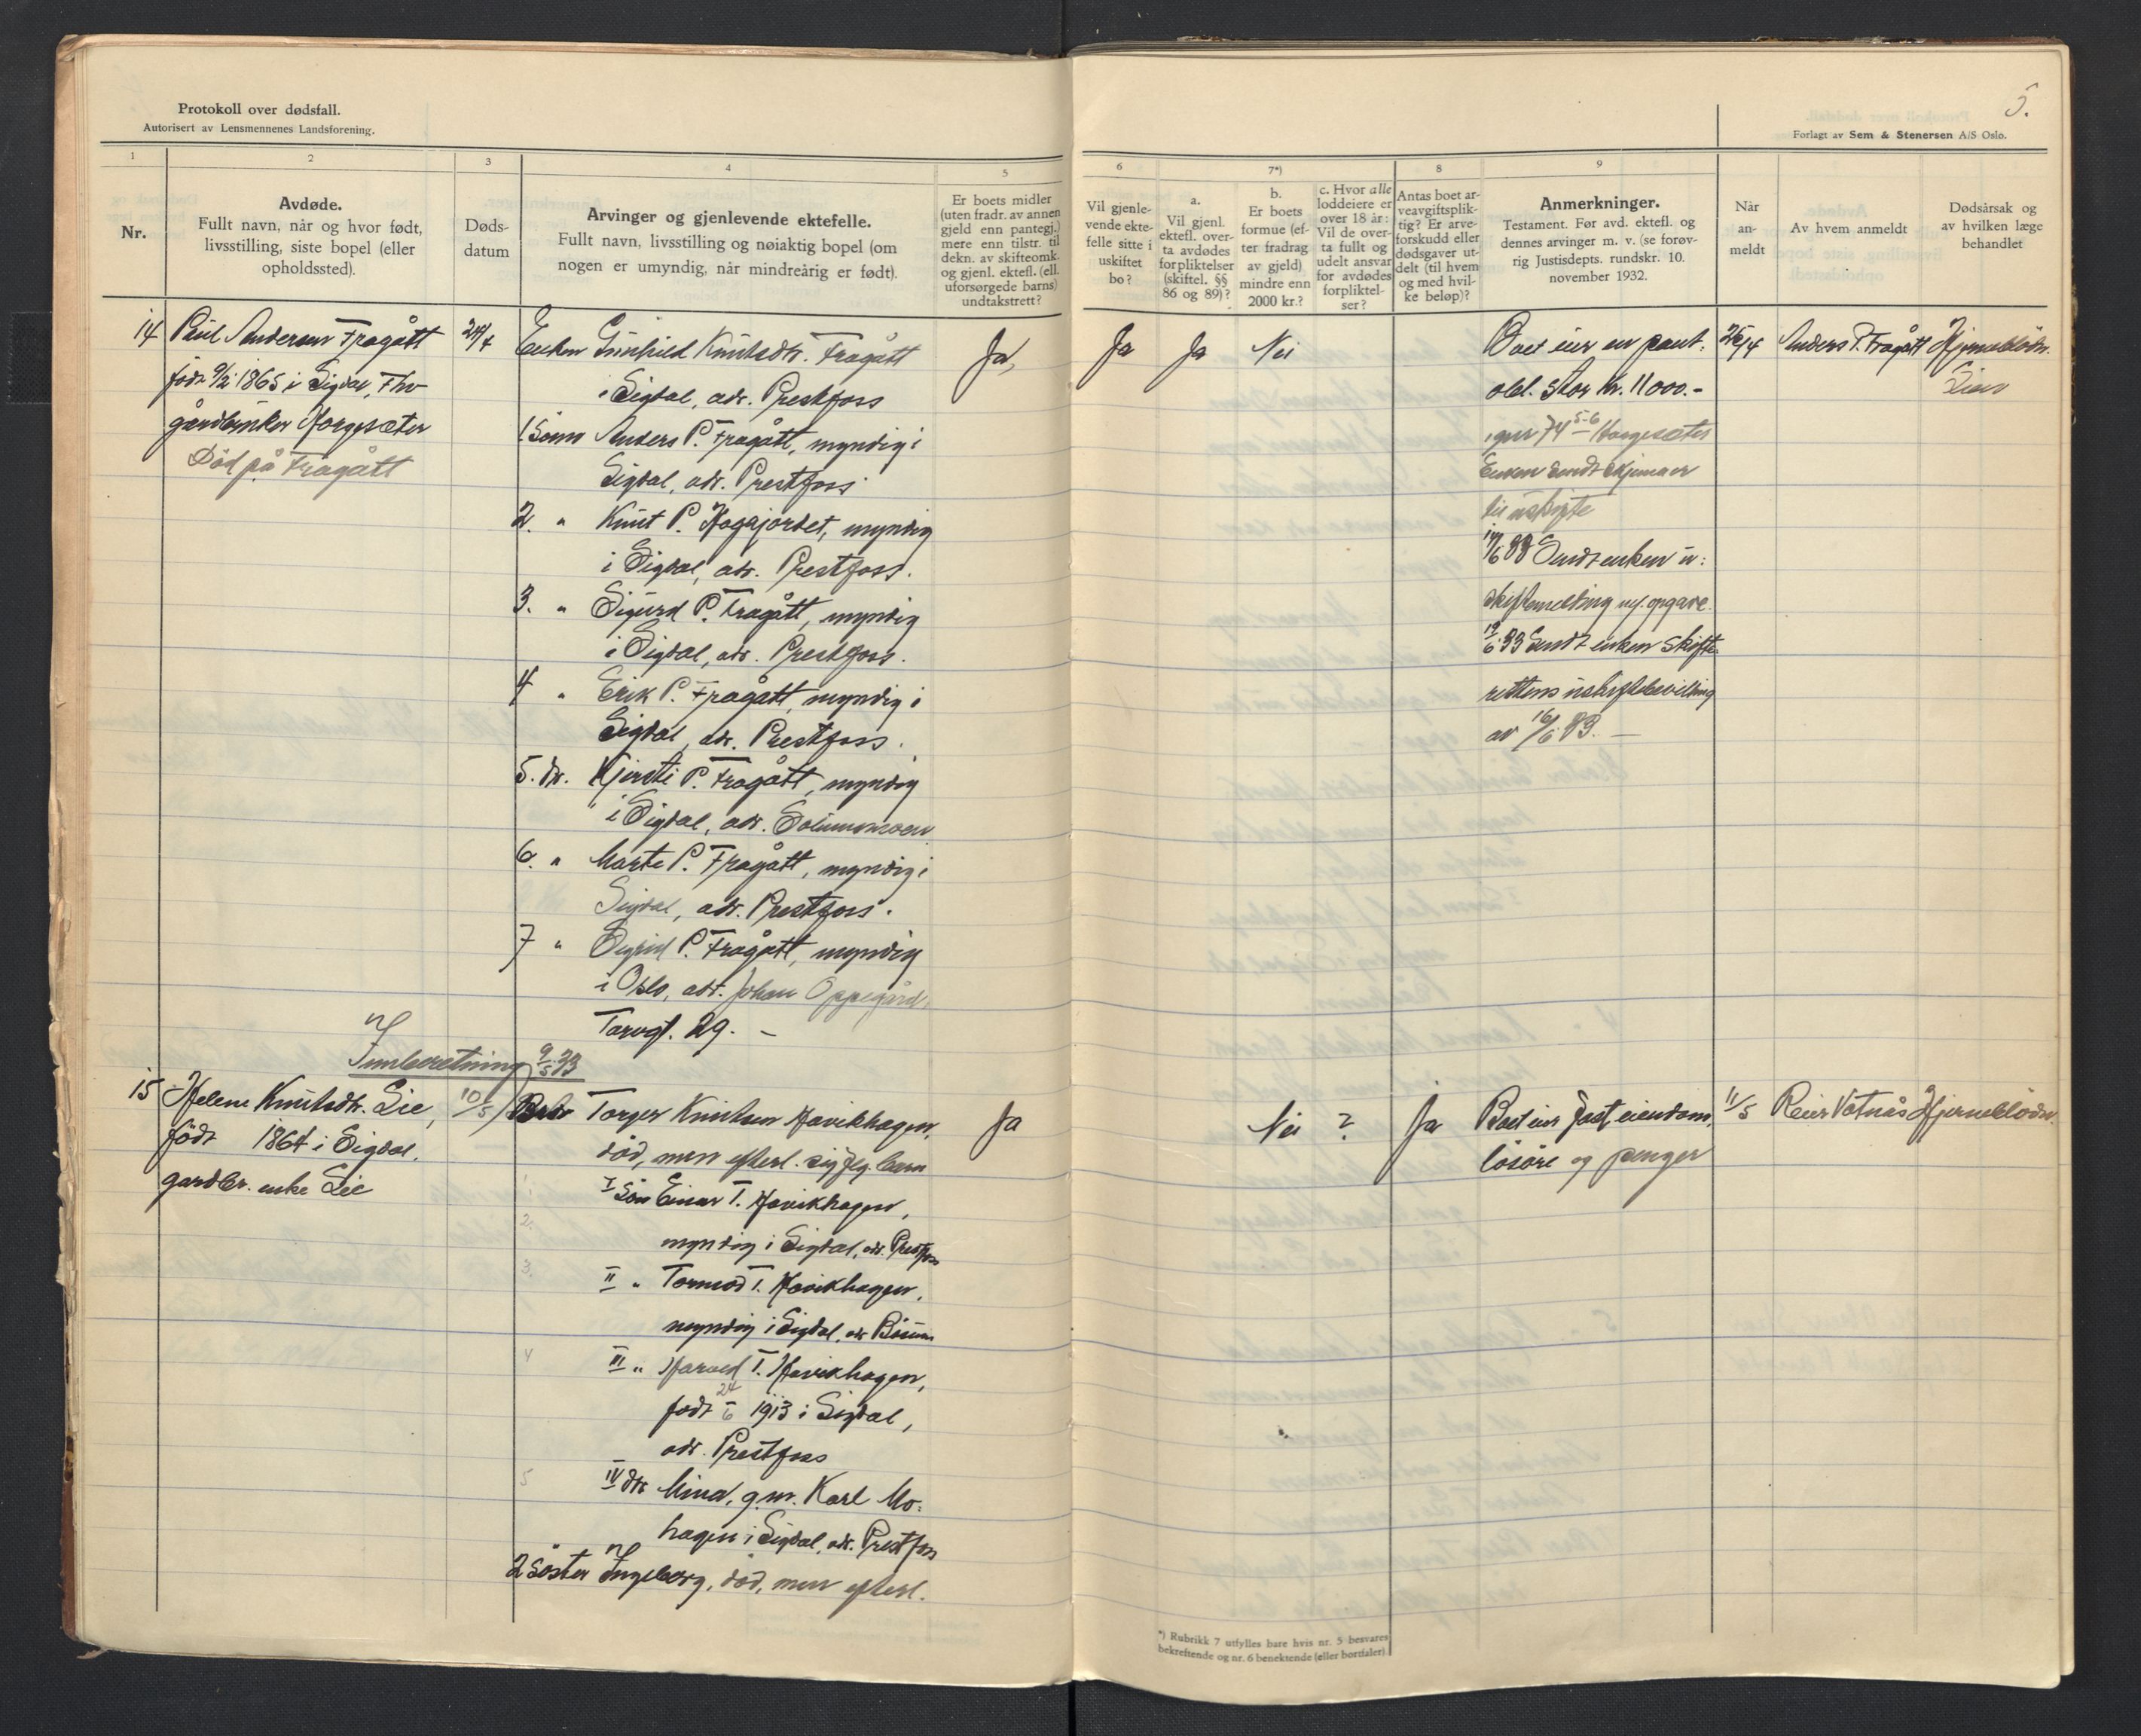 Protokoll over dødsfall.
Autorisert av Lensmennenes Landsforening.
1
Nr.
2
Avdøde.
Fullt navn, når og hvor født,
livsstilling, siste bopel (eller
opholdssted).
3
Døds-
datum
4
Arvinger og gjenlevende ektefelle.
Fullt navn, livsstilling og nøiaktig bopel (om
nogen er umyndig, når mindreårig er født).
5
Er boets midler
(uten fradr. av annen
gjeld enn pantegj.)
mere enn tilstr. til
dekn. av skifteomk.
og gjenl. ektefl. (ell.
uforsørgede barns)
undtakstrett?
14
Paul Andersen Fragått
født 9/2 1865 i Sigdal, Fhv
gårdbruker Horgesæter
Død på Fragått
24/4
Enken Gunhild Knutsdtr. Fragått
i Sigdal, adr. Prestfoss
1 Sønn Anders P. Fragått, myndig i
Sigdal, adr. Prestfoss
2. " Knut P. Hagajordet, myndig
i Sigdal, adr. Prestfoss.
3. " Sigurd P. Fragått, myndig
i Sigdal, adr. Prestfoss.
4 " Erik P. Fragått, myndig i
Sigdal, adr. Prestfoss.
5. dtr. Kjersti P. Fragått, myndig
i Sigdal, adr. Solumsmoen
6. " Marte P. Fragått, myndig i
Sigdal, adr. Prestfoss.
7 " Sigrid P. Fragått, myndig
i Oslo, adr. Johan Oppegård,
Torvgt. 29. –
Ja,
Innberetning 9/5 33
15
Helene Knutsdtr. Lie,
født 1864 i Sigdal.
gardbr. enke Lie
10/5
Bror Torger Knutsen Havikhagen,
død, men efterl. sig flg. barn
1. I Søn Einar T. Havikhagen,
2. myndig i Sigdal, adr. Prestfoss
3. II " Tormod T. Havikhagen,
myndig i Sigdal, adr Bærum
4 III " Harald T. Havikhagen,
født 24/6 1913 i Sigdal,
adr. Prestfoss
5 IV dtr Mina, g.m. Karl Mo-
hagen i Sigdal, adr. Prestfoss
2 søster Ingeborg, død, men efterl.
Ja
5.
Forlagt av Sem & Stenersen A/S Oslo.
6
Vil gjenle-
vende ekte-
felle sitte i
uskiftet
bo?
7*)
a.
Vil gjenl.
ektefl. over-
ta avdødes
forpliktelser
(skiftel. §§
86 og 89)?
b.
Er boets
formue (ef-
ter fradrag
av gjeld)
mindre enn
2000 kr.?
c. Hvor alle
loddeiere er
over 18 år:
Vil de over-
ta fullt og
udelt ansvar
for avdødes
forpliktel-
ser?
8
Antas boet ar-
veavgiftsplik-
tig? Er arve-
forskudd eller
dødsgaver ut-
delt (til hvem
og med hvil-
ke beløp)?
9
Anmerkninger.
Testament. Før avd. ektefl. og
dennes arvinger m. v. (se forøv-
rig Justisdepts. rundskr. 10.
november 1932.
Når
an-
meldt
Av hvem anmeldt
Dødsårsak og
av hvilken læge
behandlet
Ja
Ja
Nei
Boet eier en pant-
obl. stor kr. 11000.-
i gnr 74 5-6 Horgesæter
Enken sendt skjema er
til uskifte
14/6 33 Sendt enken u-
skiftemelding
19/6 33 Sendt enken skifte-
rettens uskiftebevilling
av 16/6 33. –
26/4
Anders P. Fragått
Hjerneblødn.
Nei
?
Ja
Boet eier fast eiendom,
løsøre og penger
11/5
Reier Votnås
Hjerneblødn.
*) Rubrikk 7 utfylles bare hvis nr. 5 besvares
bekreftende og nr. 6 benektende (eller bortfaler)